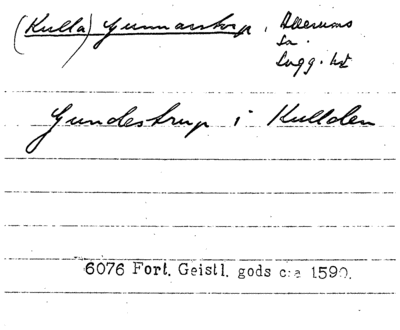 (Kulla) Gunnarstorp, Allerums
sn.
Lugg. hd
Gundestrup i Kullden
6076 Fort. Geistl. gods c:a 1590.